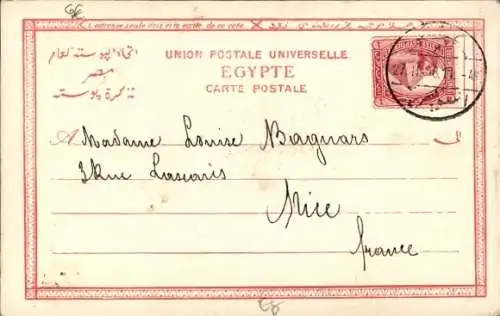 L'adresse seule doit être écrite de ce côté.
UNION POSTALE UNIVERSELLE.
EGYPTE
CARTE POSTALE
اتحاد البوسته العام
مصر
تذكرة بوسته
A Madame Louise Bagnars الى
3 Rue Lascaris
Nice
france